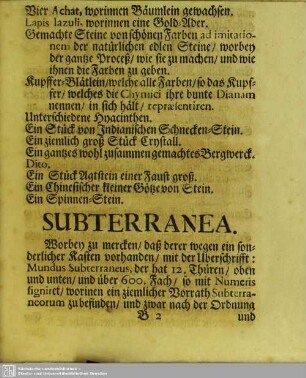 Vier Achat, worinnen Bäumlein gewachsen.
Lapis lazuli, worinnen eine Gold-Ader.
Gemachte Steine von schönen Farben ad imitatio-
nem der natürlichen edlen Steine/ worbey
der gantze Proceß/ wie sie zu machen/ und wie
ihnen die Farben zu geben.
Kupffer-Blätlein/welche alle Farben/so das Kupf-
fer/ welches die Chymici ihre bunte Dianam
nennen/ in sich hält/ repræsentiren.
Unterschiedene Hyacinthen.
Ein Stück von Indianischen Schnecken-Stein.
Ein ziemlich groß Stück Crystall.
Ein gantzes wohl zusammen gemachtes Bergwerck.
Dito.
Ein Stück Agtstein einer Faust groß.
Ein Chinesischer kleiner Götze von Stein.
Ein Spinnen-Stein.
SUBTERRANEA.
Worbey zu mercken/ daß derer wegen ein son-
derlicher Kasten vorhanden/ mit der Uberschrifft:
Mundus Subterraneus, der hat 12. Thüren/ oben
und unten/ und über 600. Fach/ so mit Numeris
signiret/ worinen ein ziemlicher Vorrath Subterra-
neorum zu befinden/ und zwar nach der Ordnung
B 2 und